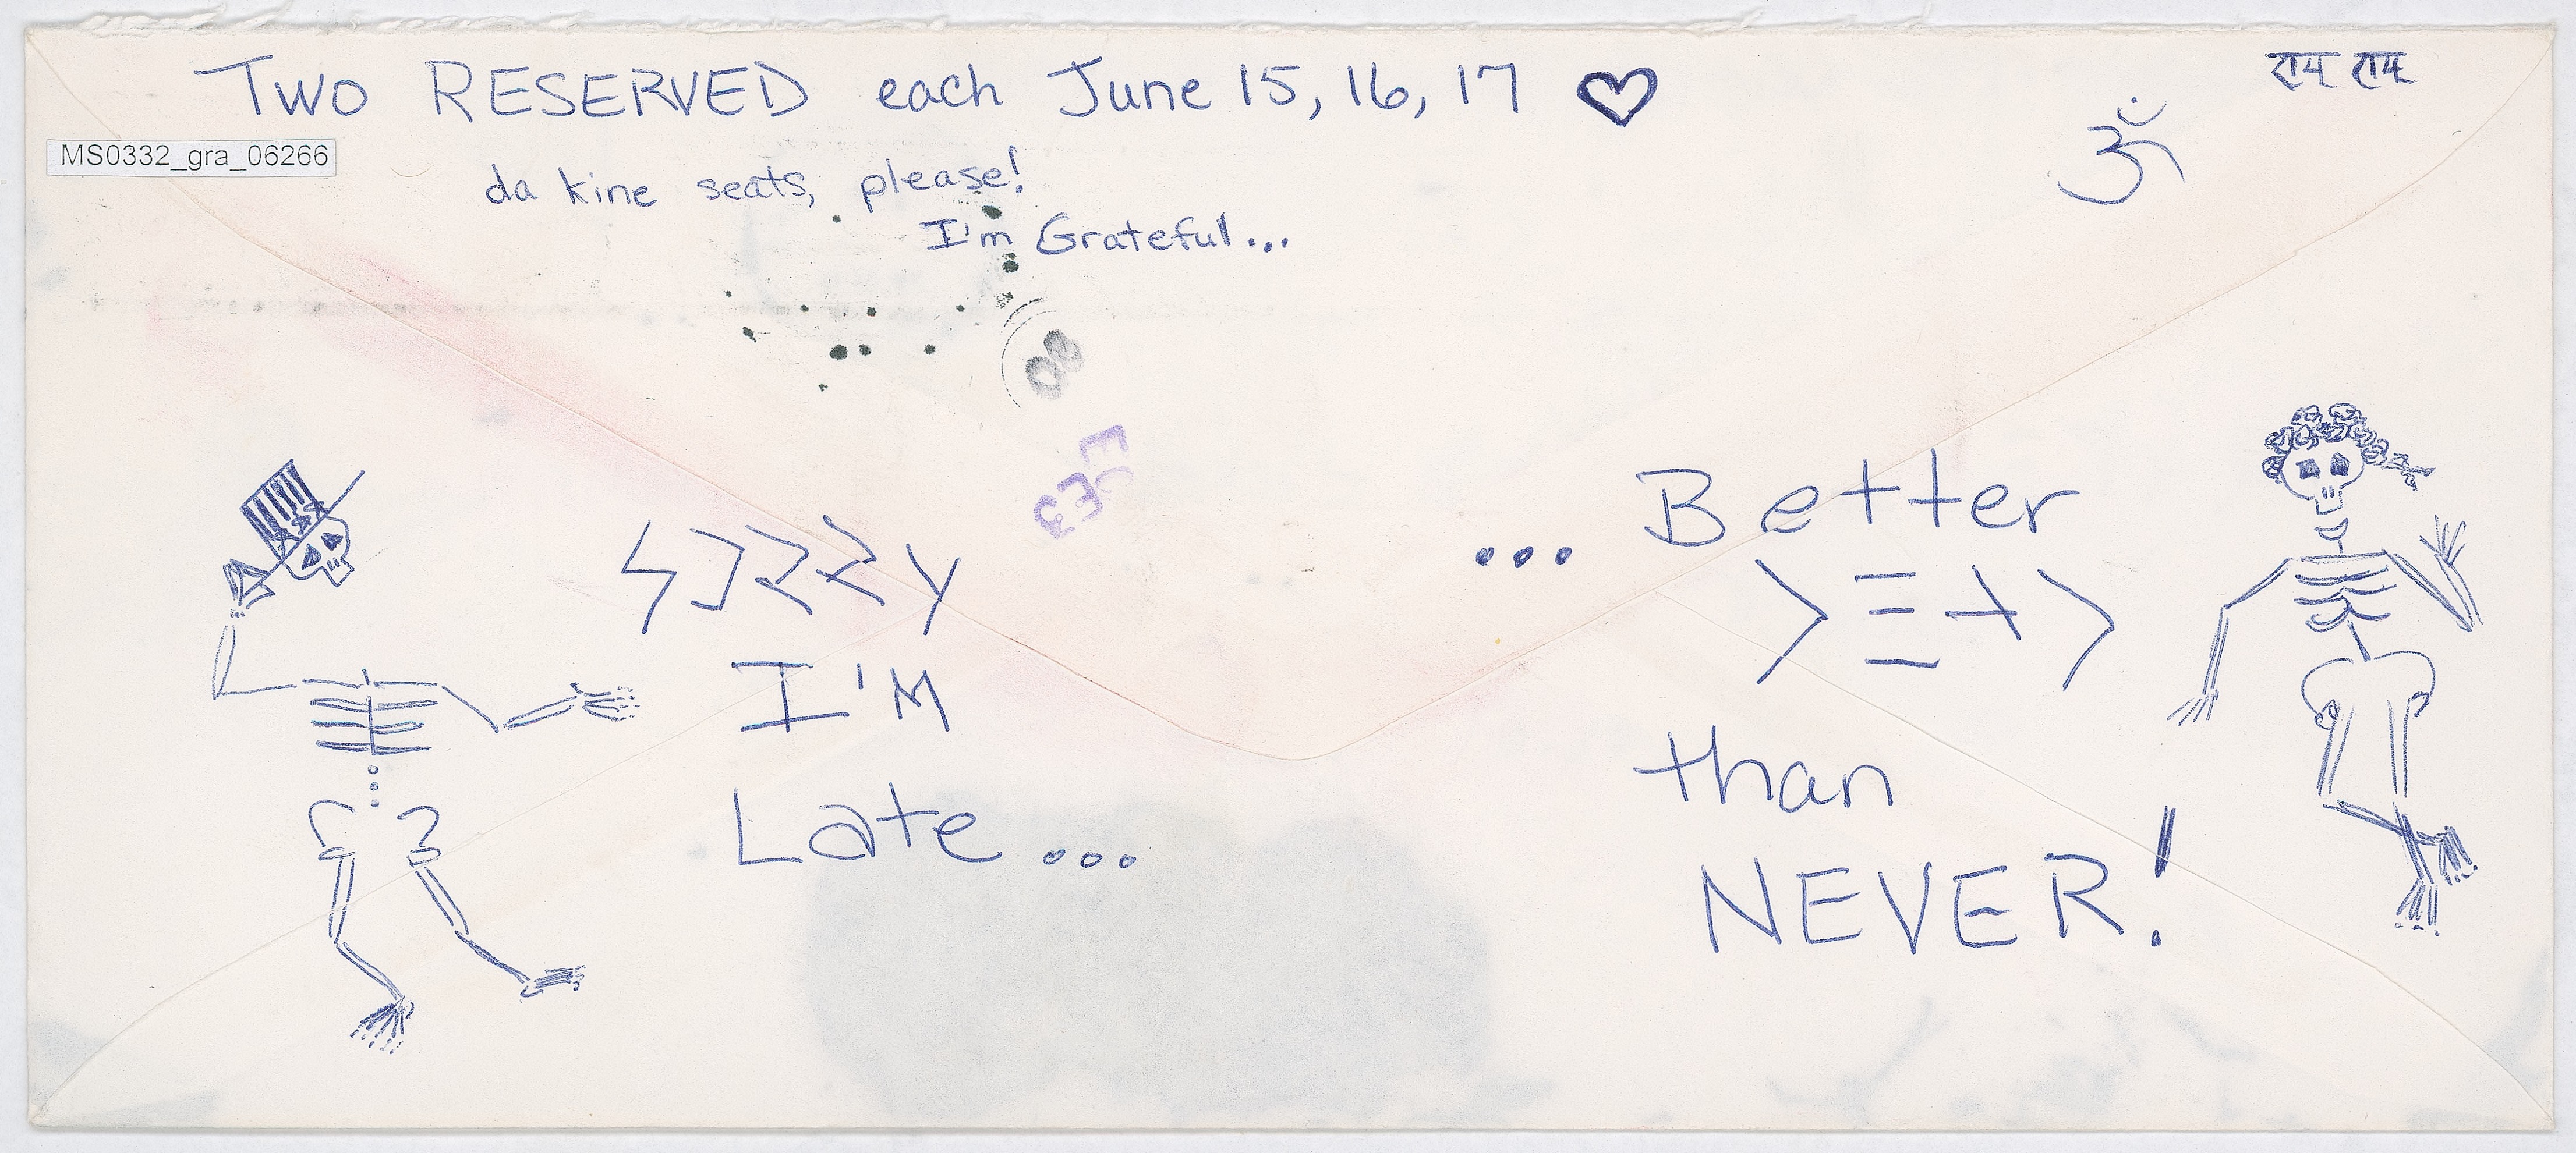 TWO RESERVED each June 15, 16, 17
राम राम
ॐ
MS0332_gra_06266
da kine seats, please!
I'm Grateful...
SORRY
I'M
Late ...
... Better
LATE
than
NEVER!